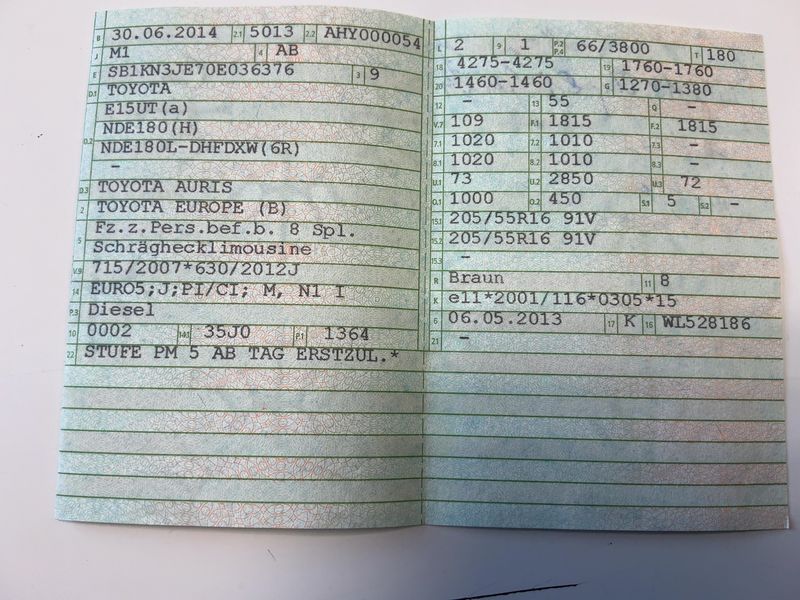 B 30.06.2014 2.1 5013 2.2 AHY000054
J M1 4 AB
E SB1KN3JE70E036376 3 9
D.1 TOYOTA
E15UT(a)
D.2 NDE180(H)
NDE180L-DHFDXW(6R)
-
D.3 TOYOTA AURIS
2 TOYOTA EUROPE (B)
5 Fz.z.Pers.bef.b. 8 Spl.
Schräghecklimousine
V.9 715/2007*630/2012J
14 EURO5;J;PI/CI; M, N1 I
P.3 Diesel
10 0002 14.1 35J0 P.1 1364
22 STUFE PM 5 AB TAG ERSTZUL.*
L 2 9 1 P.2 P.4 66/3800 T 180
18 4275-4275 19 1760-1760
20 1460-1460 G 1270-1380
12 - 13 55 Q -
V.7 109 F.1 1815 F.2 1815
7.1 1020 7.2 1010 7.3 -
8.1 1020 8.2 1010 8.3 -
U.1 73 U.2 2850 U.3 72
O.1 1000 O.2 450 S.1 5 S.2 -
15.1 205/55R16 91V
15.2 205/55R16 91V
15.3 -
R Braun 11 8
K e11*2001/116*0305*15
6 06.05.2013 17 K 16 WL528186
21 -